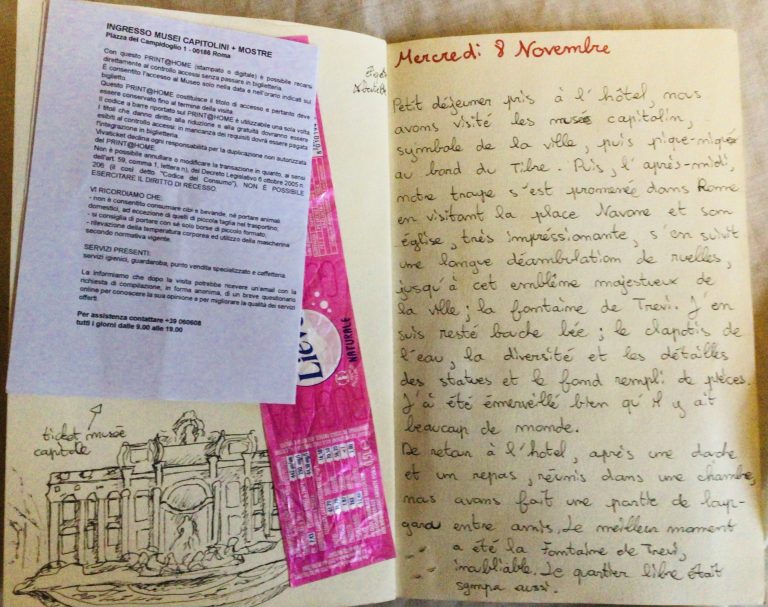 INGRESSO MUSEI CAPITOLINI + MOSTRE
Piazza del Campidoglio 1 - 00186 Roma
Con questo PRINT@HOME (stampato o digitale) è possibile recarsi
direttamente al controllo accessi senza passare in biglietteria.
È consentito l'accesso al Museo solo nella data e nell'orario indicati sul
biglietto.
Questo PRINT@HOME costituisce il titolo di accesso e pertanto deve
essere conservato fino al termine della visita.
Il codice a barre riportato sul PRINT@HOME è utilizzabile una sola volta.
I titoli che danno diritto alla riduzione e alla gratuità dovranno essere
esibiti al controllo accessi: in mancanza dei requisiti dovrà essere pagata
l'integrazione in biglietteria.
Vivaticket declina ogni responsabilità per la duplicazione non autorizzata
del PRINT@HOME.
Non è possibile annullare o modificare la transazione in quanto, ai sensi
dell'art. 59, comma 1, lettera n), del Decreto Legislativo 6 ottobre 2005 n.
206 (il così detto "Codice del Consumo"), NON È POSSIBILE
ESERCITARE IL DIRITTO DI RECESSO.
VI RICORDIAMO CHE:
- non è consentito consumare cibi e bevande, né portare animali
domestici, ad eccezione di quelli di piccola taglia nel trasportino;
- si consiglia di portare con sé solo borse di piccolo formato;
- rilevazione della temperatura corporea ed utilizzo della mascherina
secondo normativa vigente.
SERVIZI PRESENTI:
servizi igienici, guardaroba, punto vendita specializzato e caffetteria.
La informiamo che dopo la visita potrebbe ricevere un'email con la
richiesta di compilazione, in forma anonima, di un breve questionario
online per conoscere la sua opinione e per migliorare la qualità dei servizi
offerti.
Per assistenza contattare +39 060608
tutti i giorni dalle 9.00 alle 19.00
Lieve
NATURALE
ticket musée
capitole
Mercredi 8 Novembre
Petit déjeuner pris à l'hôtel, nous
avons visité les musée capitolin,
symbole de la ville, puis pique-niqué
au bord du Tibre. Puis, l'après-midi,
notre troupe s'est promenée dans Rome
en visitant la place Navone et son
église, très impréssionante, s'en suivit
une longue déambulation de ruelles,
jusqu'à cet emblême majestueux de
la ville ; la fontaine de Trevi. J'en
suis resté bouche bée ; le clapotis de
l'eau, la diversité et les détailles
des statues et le fond rempli de pièces.
J'ai été émerveillé bien qu'il y ait
beaucoup de monde.
De retour à l'hôtel, après une douche
et un repas, réunis dans une chambre,
nous avons fait une partie de loup-
garou entre amis. Le meilleur moment
a été la Fontaine de Trevi,
inoubliable. Le quartier libre était
sympa aussi.